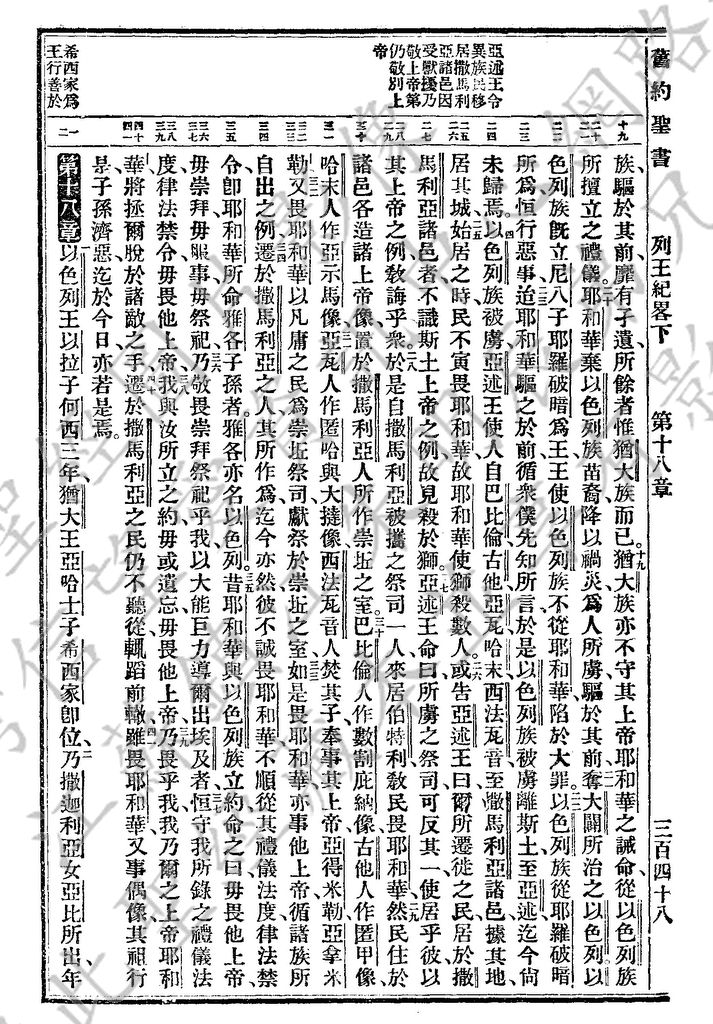 舊約聖書
列王紀畧下
第十八章
三百四十八
亞述王令
異族民移
居撒馬利
亞諸邑因
受獸擾乃
敬上帝第
仍敬別上
帝
希西家爲
王行善於
十九
二十
二一
二二
二三
二四
二五
二六
二七
二八
二九
三十
三一
三二
三三
三四
三五
三六
三七
三八
三九
四十
四一
一
二
族驅於其前靡有孑遺所餘者惟猶大族而已猶大族亦不守其上帝耶和華之誡命從以色列族
所擅立之禮儀耶和華棄以色列族苗裔降以禍災爲人所虜驅於其前奪大闢所治之以色列以
色列族旣立尼八子耶羅破暗爲王王使以色列族不從耶和華陷於大罪以色列族從耶羅破暗
所爲恒行惡事迨耶和華驅之於前循衆僕先知所言於是以色列族被虜離斯土至亞述迄今尙
未歸焉以色列族被虜亞述王使人自巴比倫古他亞瓦哈末西法瓦音至撒馬利亞諸邑據其地
居其城始居之時民不寅畏耶和華故耶和華使獅殺數人或告亞述王曰爾所遷徙之民居於撒
馬利亞諸邑者不識斯土上帝之例故見殺於獅亞述王命曰所虜之祭司可反其一使居乎彼以
其上帝之例敎誨乎衆於是自撒馬利亞被攜之祭司一人來居伯特利敎民畏耶和華然民住於
諸邑各造諸上帝像置於撒馬利亞人所作崇坵之室巴比倫人作數割庇納像古他人作匿甲像
哈末人作亞示馬像亞瓦人作匿哈與大撻像西法瓦音人焚其子奉事其上帝亞得米勒亞拿米
勒又畏耶和華以凡庸之民爲崇坵祭司獻祭於崇坵之室如是畏耶和華亦事他上帝循諸族所
自出之例遷於撒馬利亞之人其所作爲迄今亦然彼不誠畏耶和華不順從其禮儀法度律法禁
令卽耶和華所命雅各子孫者雅各亦名以色列昔耶和華與以色列族立約命之曰毋畏他上帝
毋崇拜毋服事毋祭祀乃敬畏崇拜祭祀乎我以大能巨力導爾出埃及者恒守我所錄之禮儀法
度律法禁令毋畏他上帝我與汝所立之約毋或遺忘毋畏他上帝乃畏乎我我乃爾之上帝耶和
華將拯爾脫於諸敵之手遷於撒馬利亞之民仍不聽從輒蹈前轍雖畏耶和華又事偶像其祖行
是子孫濟惡迄於今日亦若是焉
第十八章以色列王以拉子何西三年猶大王亞哈士子希西家卽位乃撒迦利亞女亞比所出年